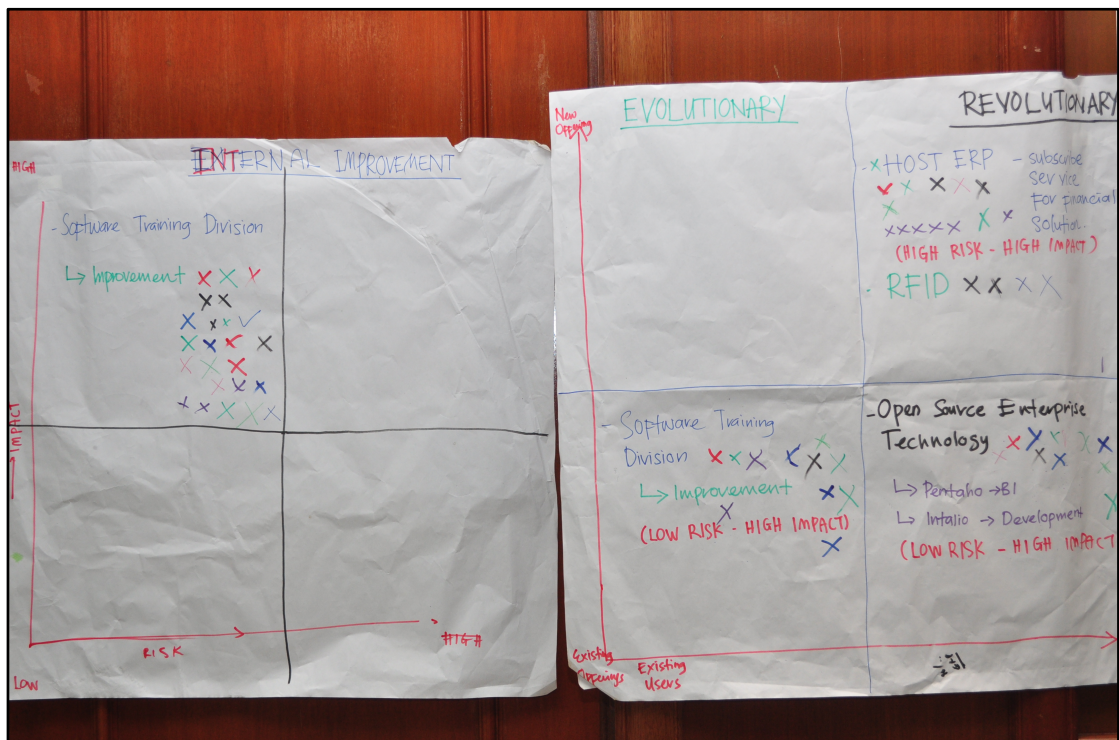 INTERNAL IMPROVEMENT
HIGH
- Software Training Division
↳ Improvement
→ IMPACT
RISK
HIGH
LOW
New
Offering
EVOLUTIONARY
REVOLUTIONARY
- HOST ERP - subscribe
service
For financial
solution.
(HIGH RISK - HIGH IMPACT)
· RFID
- Software Training
Division
↳ Improvement
(LOW RISK - HIGH IMPACT)
- Open Source Enterprise
Technology
↳ Pentaho → BI
↳ Intalio → Development
(LOW RISK - HIGH IMPACT
Existing
Offerings
Existing
Users